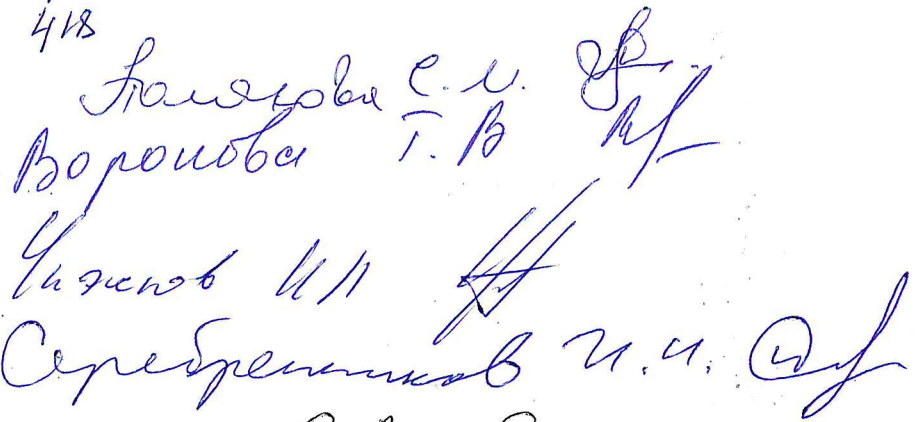 418
Полякова С. М.
Воронова Т. В
Чижков И П
Серебренников И. И.